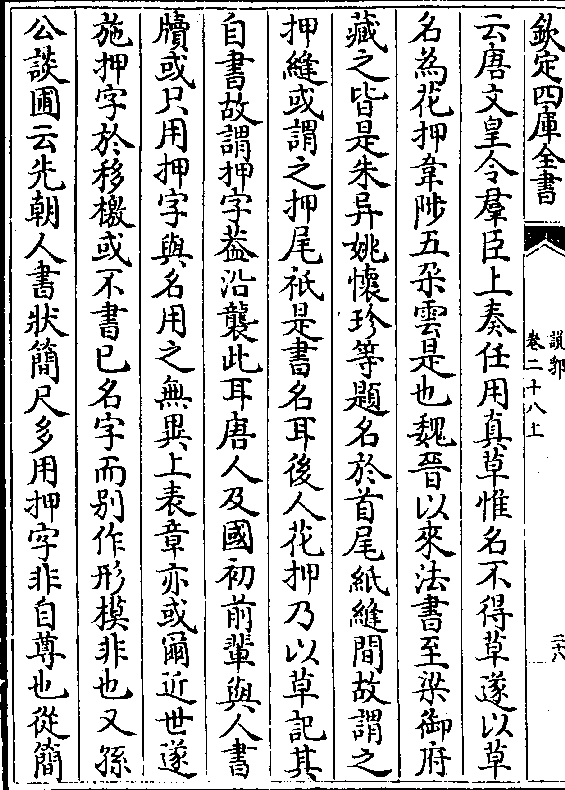 欽定四庫全書
說郛
卷二十八上
二十八
云唐文皇令羣臣上奏任用真草惟名不得草遂以草
名為花押韋陟五朶雲是也魏晉以來法書至梁御府
藏之皆是朱异姚懷珍等題名於首尾紙縫間故謂之
押縫或謂之押尾祇是書名耳後人花押乃以草記其
自書故謂押字葢沿襲此耳唐人及國初前輩與人書
牘或只用押字與名用之無異上表章亦或爾近世遂
施押字於移檄或不書已名字而别作形模非也又孫
公談圃云先朝人書狀簡尺多用押字非自尊也從簡